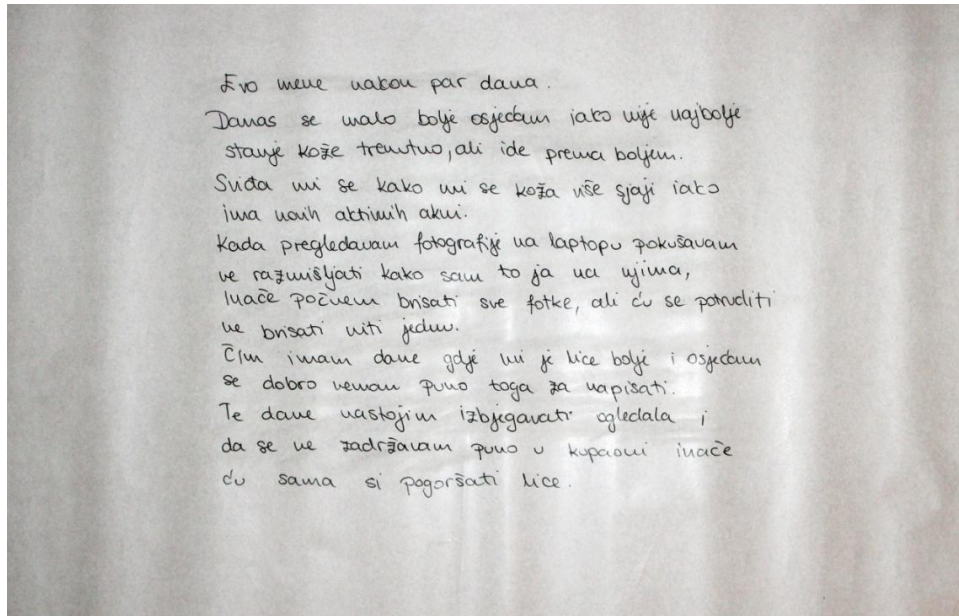 Evo mene nakon par dana.
Danas se malo bolje osjećam iako nije najbolje
stanje kože trenutno, ali ide prema boljem.
Sviđa mi se kako mi se koža više sjaji iako
ima novih aktivnih akni.
Kada pregledavam fotografije na laptopu pokušavam
ne razmišljati kako sam to ja na njima,
inače počnem brisati sve fotke, ali ću se potruditi
ne brisati niti jednu.
Čim imam dane gdje mi je lice bolje i osjećam
se dobro nemam puno toga za napisati.
Te dane nastojim izbjegavati ogledala i
da se ne zadržavam puno u kupaoni inače
ću sama si pogoršati lice.